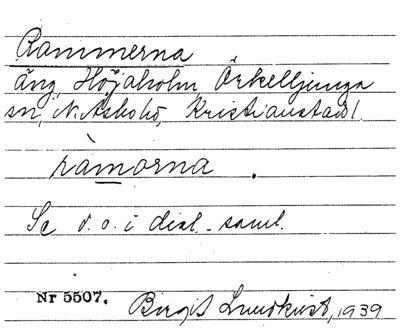 Rammerna
äng, Höjaholm, Örkelljunga
sn, N. Åsbo hd, Kristianstad l.
ràmorna .
Se d. o. i dial. saml.
Nr 5507. Birgit Lundkvist, 1939